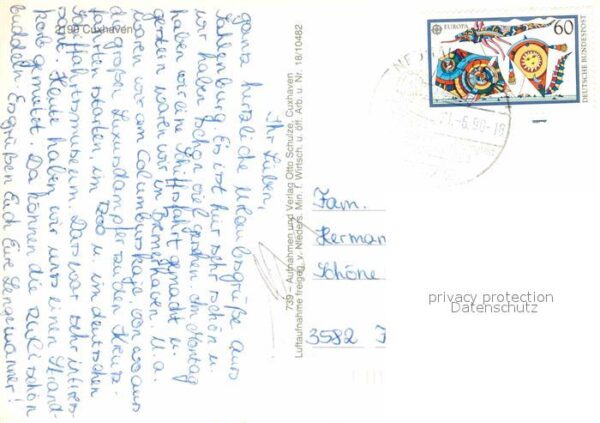 2190 Cuxhaven
Ihr Lieben,
ganz herzliche Urlaubsgrüße aus
Sahlenburg. Es ist hier sehr schön u.
wir haben schon viel gesehen. Am Montag
haben wir eine Schiffsfahrt gemacht u.
gestern waren wir in Bremerhaven. U.a.
waren wir am Columbuskaje, von wo aus
die großen Luxusdampfer zu den Kreuz-
fahrten starten, im Zoo u. im deutschen
Schiffahrtsmuseum. Das war sehr interes-
sant. Heute haben wir uns einen Strand-
korb gemietet. Da können die zwei schön
buddeln. Es grüßen Euch Eure
739 – Aufnahmen und Verlag Otto Schulze, Cuxhaven
Luftaufnahme freigeg. v. Nieders. Min. f. Wirtsch. u. öff. Arb. u. Nr. 18/10482
EUROPA
60
DEUTSCHE BUNDESPOST
Fam.
Herman
Schöne
3582
privacy protection
Datenschutz